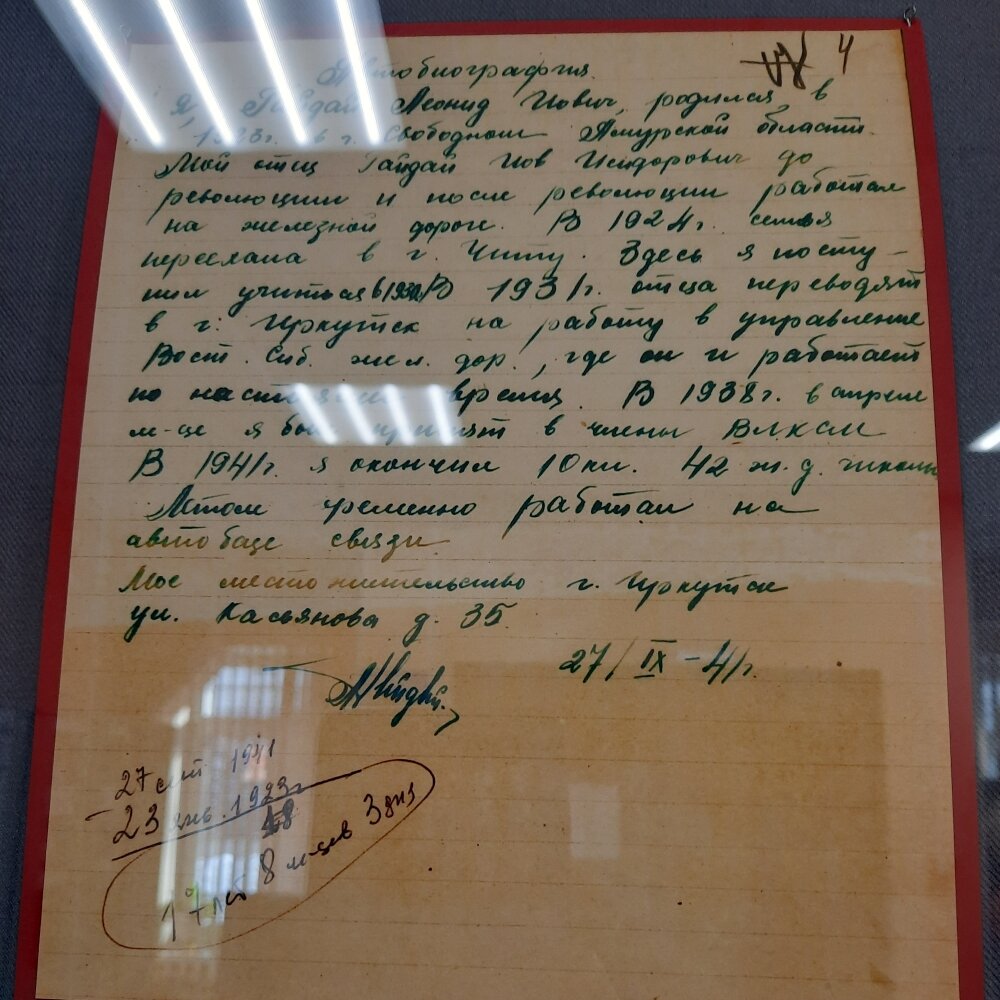 4
Автобиография.
Я, Гайдай Леонид Иович, родился в
1923г. в г. Свободном Амурской области.
Мой отец Гайдай Иов Исидорович до
революции и после революции работал
на железной дороге. В 1924г. семья
переехала в г. Читу. Здесь я посту-
пил учиться в 1930г. В 1931г. отца переводят
в г. Иркутск на работу в управление
Вост. Сиб. жел. дор., где он и работает
по настоящее время. В 1938г. в апреле
м-це я был принят в члены ВЛКСМ
В 1941г. я окончил 10 кл. 42 ж.д. школы
Летом временно работал на
автобазе связи
Мое место жительство г. Иркутск
ул. Касьянова д. 35
27/IX-41г.
27 сент 1941
- 23 янв. 1923г
18
17 лет 8 м-цев 3 дня